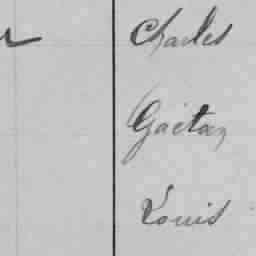 Charles
Gaëtan
Louis